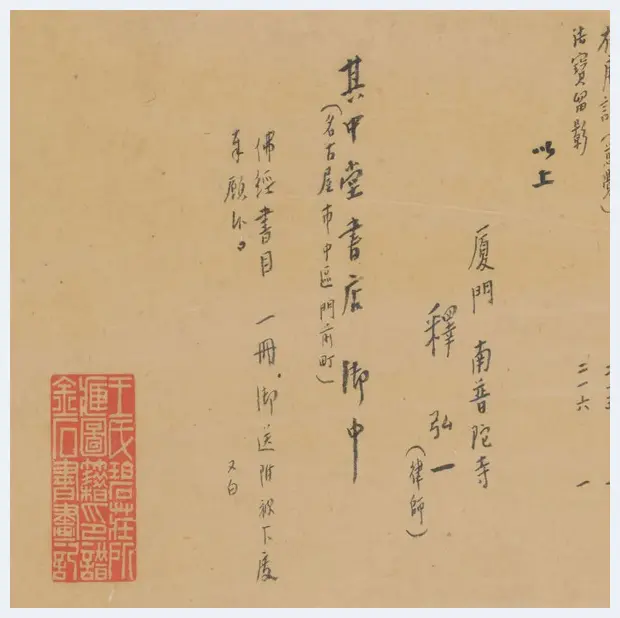 法寶留影 二一六 一
以上
厦門 南普陀寺
釋弘一
(律師)
其中堂書店御中
(名古屋市中區門前町)
佛經書目 一冊、御送附被下度
奉願候。
又白
王氏碧莊所
圖籍印譜
金石書畫